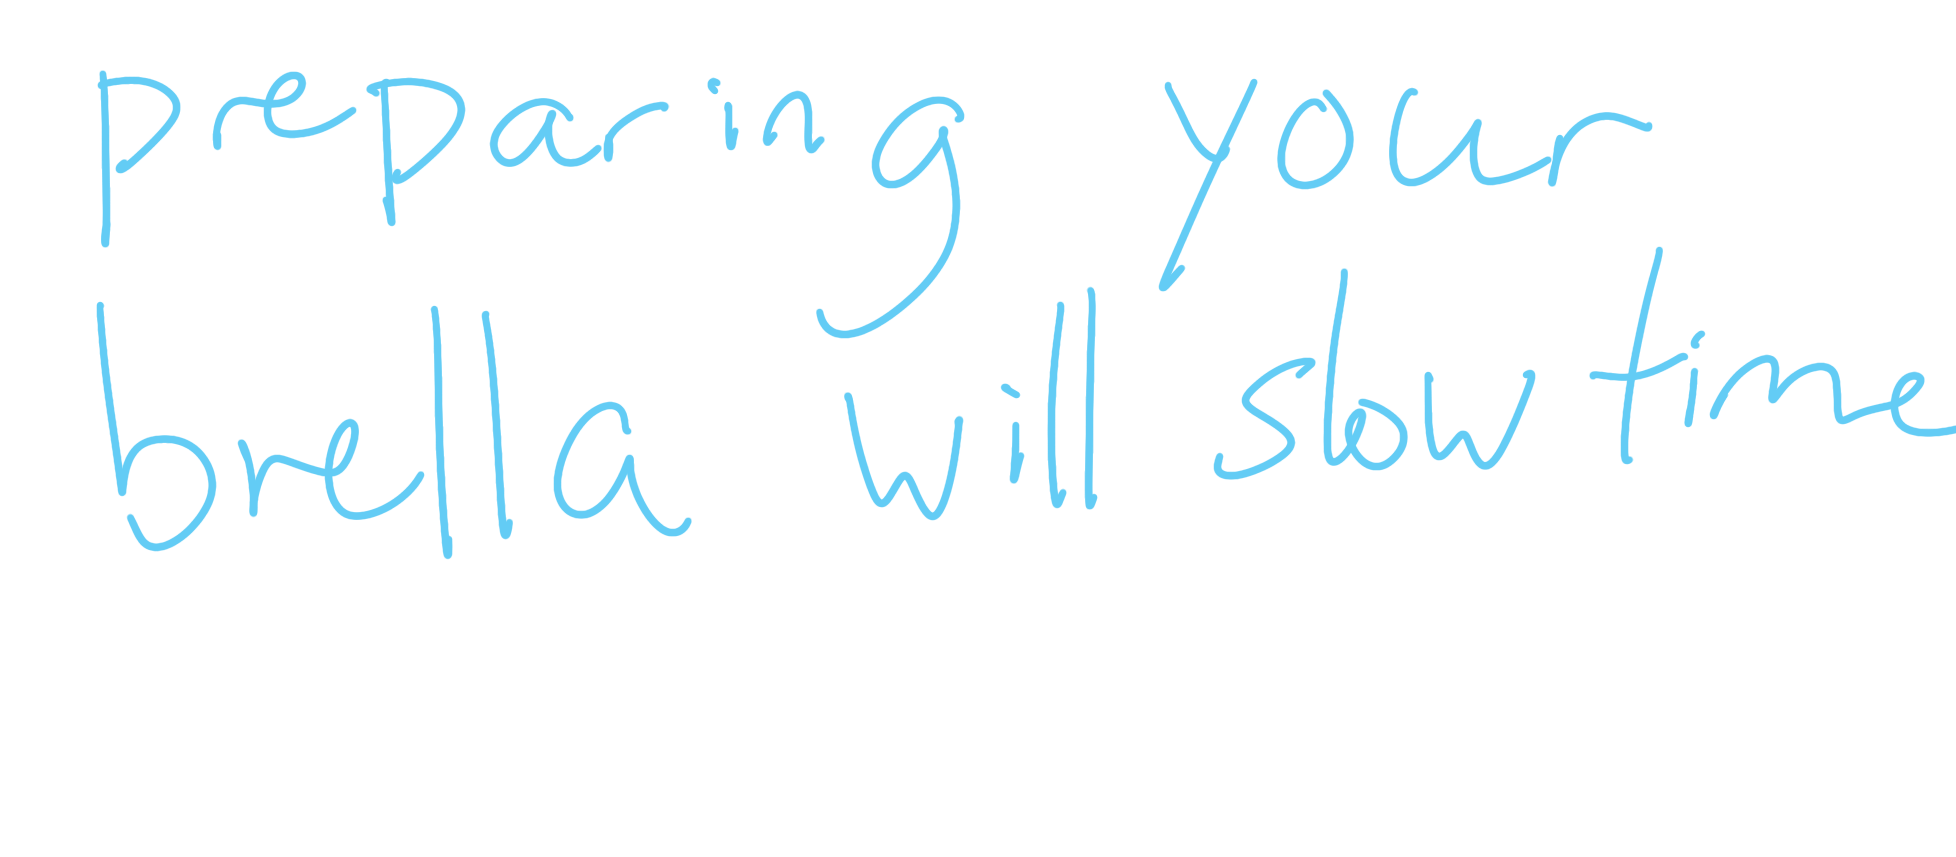 preparing your
brella will slow time